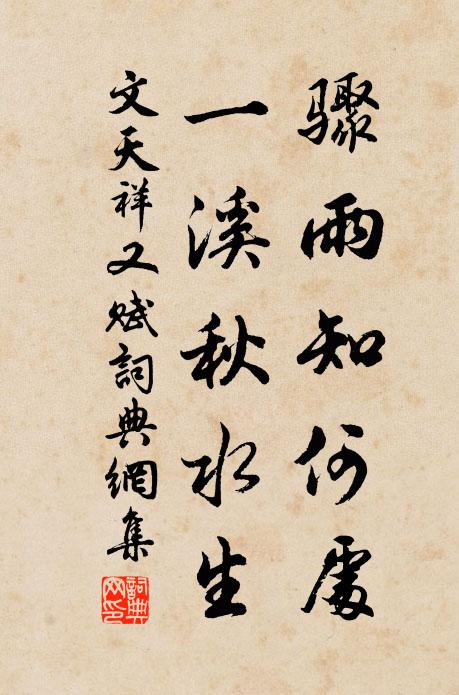 驟雨知何處
一溪秋水生
文天祥又賦詞典網集
詞典網印